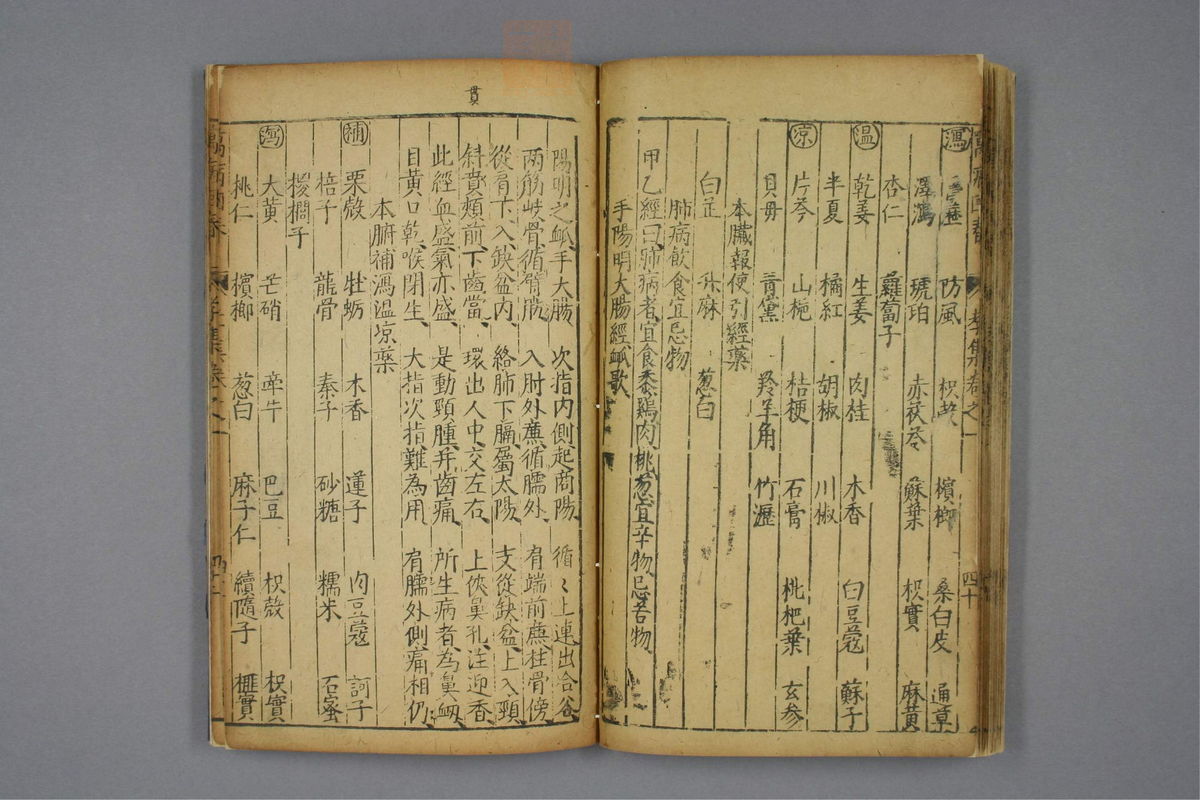 瀉 葶藶 防風 枳殼 檳榔 桑白皮 通草
澤瀉 琥珀 赤茯苓 蘇葉 枳實 麻黃
杏仁 蘿蔔子
溫 乾姜 生姜 肉桂 木香 白豆蔻 蘇子
半夏 橘紅 胡椒 川椒
凉 片芩 山梔 桔梗 石膏 枇杷葉 玄參
貝母 青黛 羚羊角 竹瀝
本臟報使引經藥
白芷 升麻 葱白
肺病飲食宜忌物
甲乙經曰肺病者宜食黍鷄肉桃葱宜辛物忌苦物
手陽明大腸經䘐歌
陽明之䘐手大腸 次指内側起商陽 循〻上連出合谷
两筋歧骨循臂肪 入肘外亷循臑外 肩端前亷柱骨傍
從肩下入缺盆内 絡肺下膈屬太陽 支從缺盆上入頸
斜貫頰前下齒當 環出人中交左右 上俠鼻孔注迎香
此經血盛氣亦盛 是動頸腫并齒痛 所生病者為鼻衂
目黃口乾喉閉生 大指次指難為用 肩臑外側痛相仍
本腑補瀉温凉藥
補 栗殼 牡蛎 木香 蓮子 肉豆蔻 訶子
棓子 龍骨 秦子 砂糖 糯米 石蜜
椶櫚子
瀉 大黃 芒硝 牽牛 巴豆 枳殼 枳實
桃仁 檳榔 葱白 麻子仁 續隨子 榧實
貫
四十